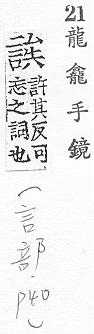 21 龍龕手鏡
許其反可
忘之詞也
(言部. P40)